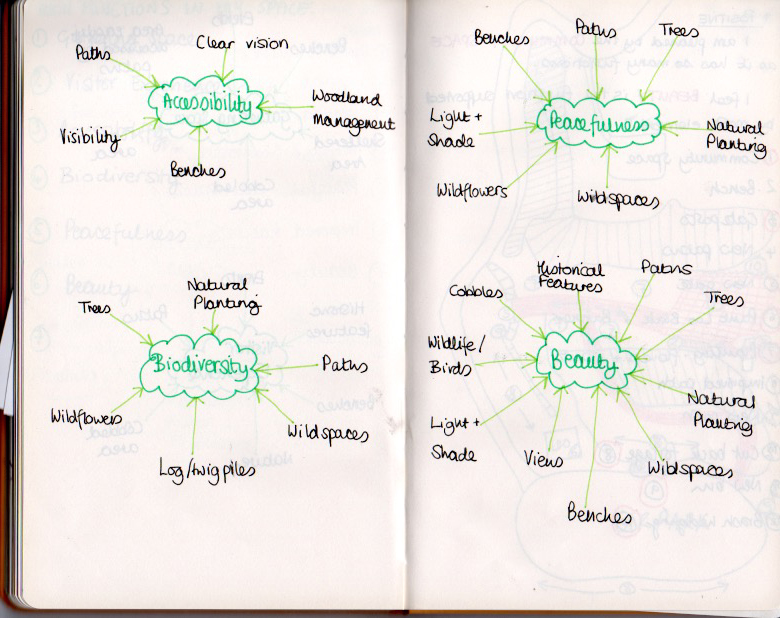 Clear vision
Paths
Accessibility
Woodland
management
Visibility
Benches
Natural
Planting
Trees
Biodiversity
Paths
Wildflowers
Wildspaces
Log/twig piles
Paths
Trees
Benches
Light +
Shade
Peacefulness
Natural
Planting
Wildflowers
Wildspaces
Historical
Features
Paths
Cobbles
Trees
Wildlife/
Birds
Beauty
Natural
Planting
Light +
Shade
Views
Wildspaces
Benches